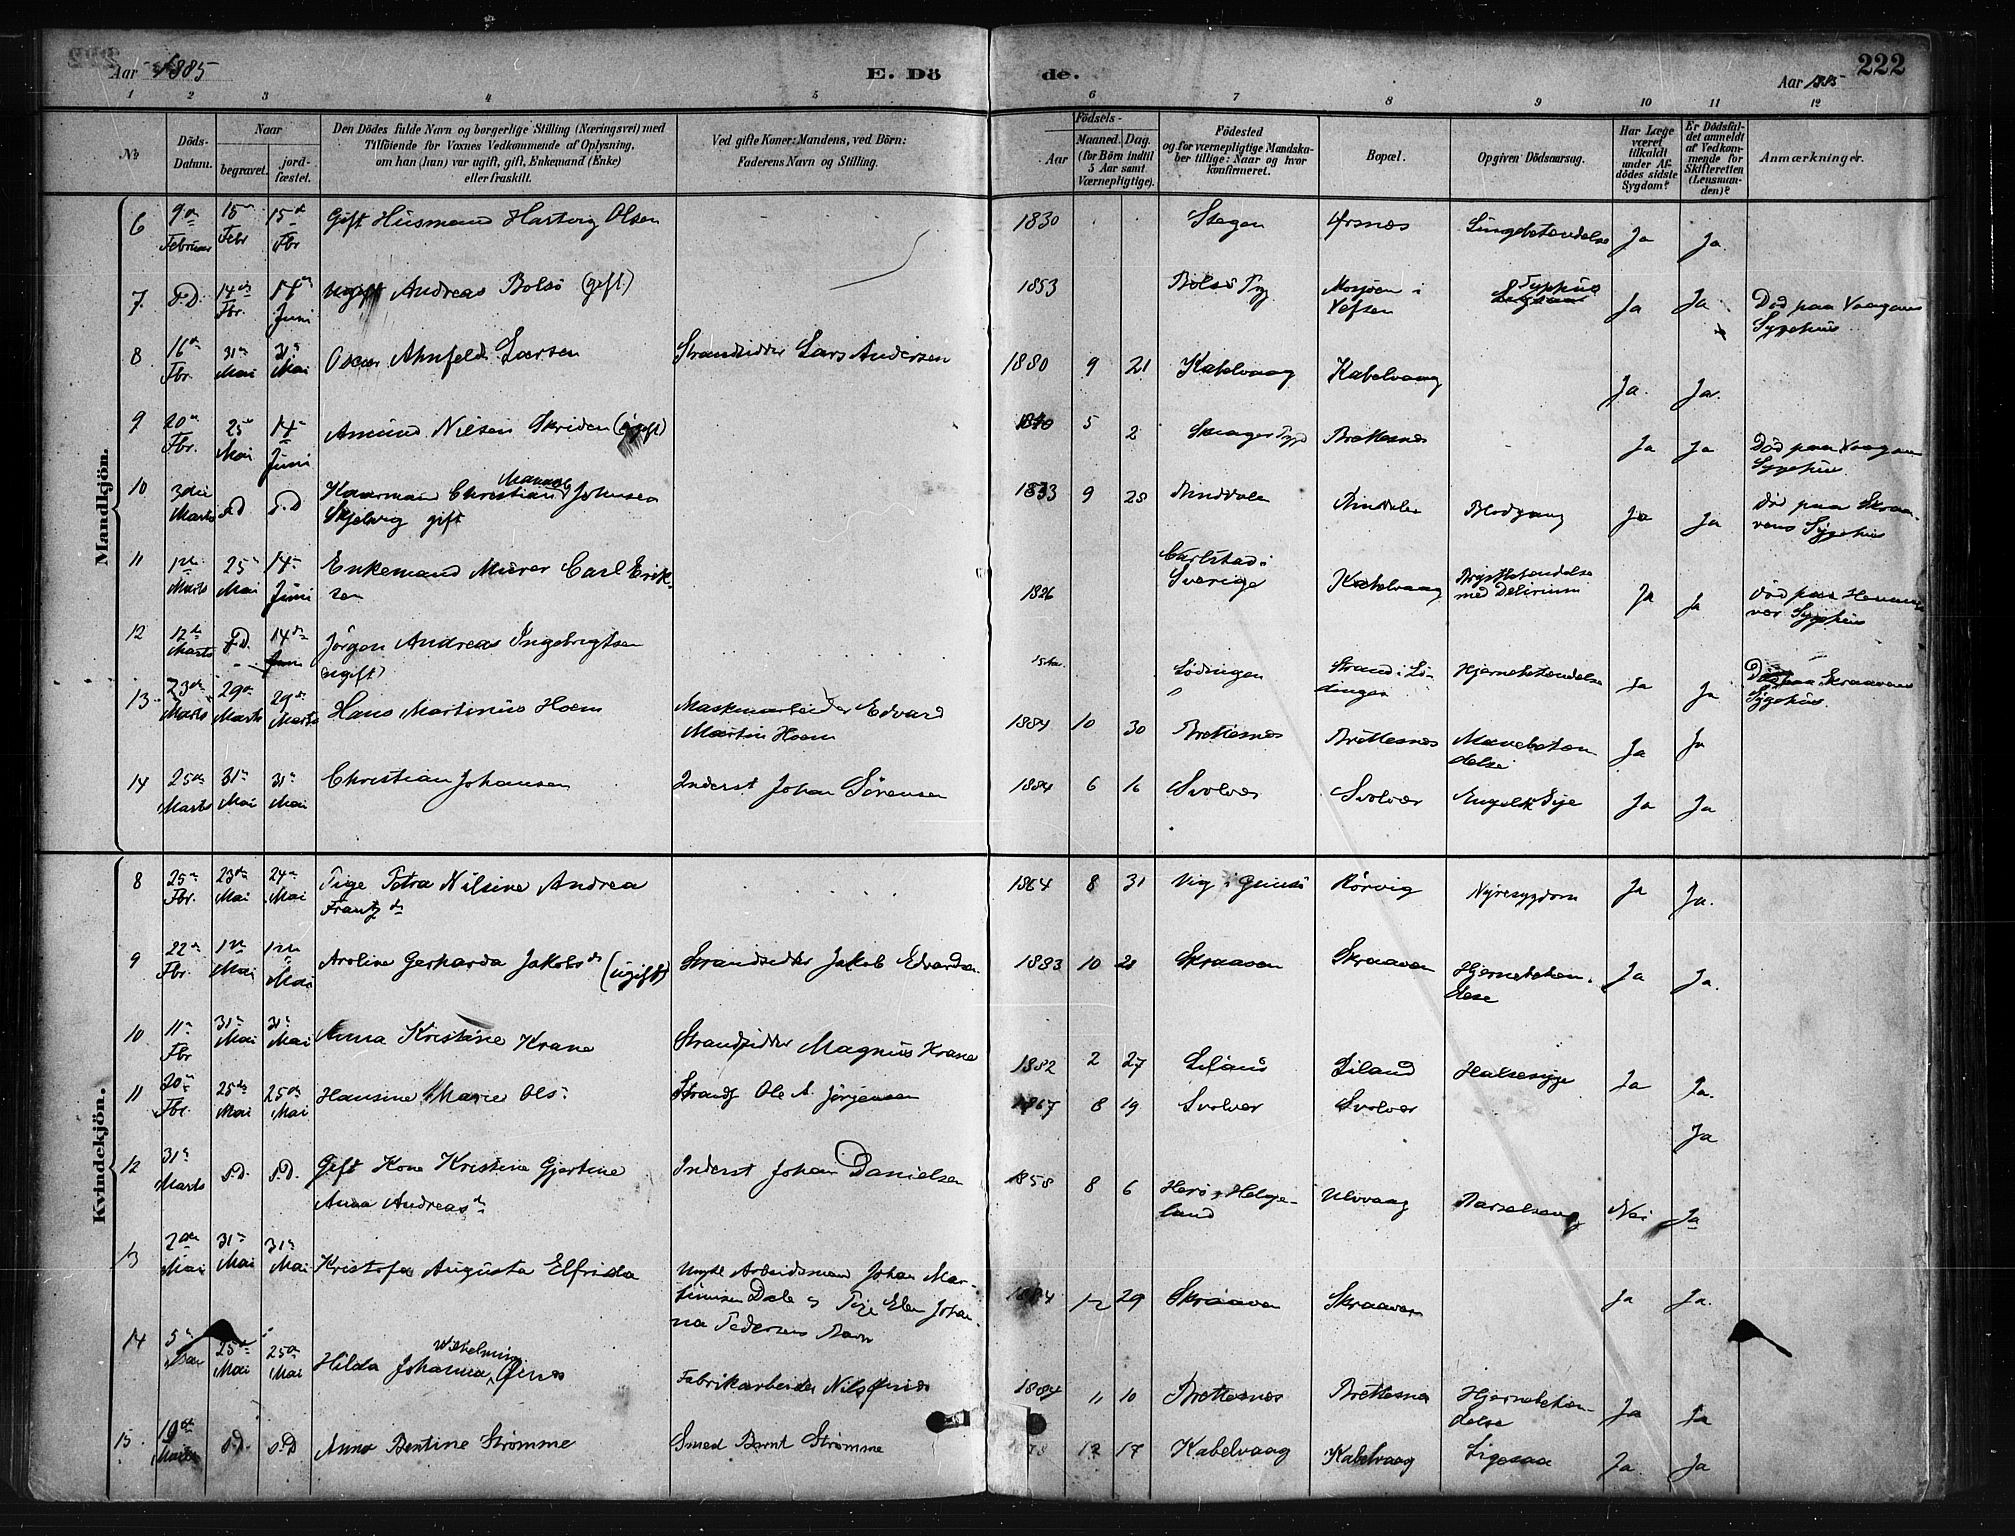 Aar 1885
E. Döde.
222
Aar 1885
1 2 3 4 5 6 7 8 9 10 11 12
No
Döds-Datum.
Naar
begravet.
jordfæstet.
Den Dödes fulde Navn og borgerlige Stilling (Næringsvei) med
Tilföiende for Voxnes Vedkommende af Oplysning,
om han (hun) var ugift, gift, Enkemand (Enke)
eller fraskilt.
Ved gifte Koner: Mandens, ved Börn:
Faderens Navn og Stilling.
Födsels-
Aar
Maaned. Dag.
(for Börn indtil
5 Aar samt
Værnepligtige).
Födested
og for værnepligtige Mandskaber tillige: Naar og hvor
konfirmeret.
Bopæl.
Opgiven Dödsaarsag.
Har Læge
været
tilkaldt
under Afdödes sidste
Sygdom?
Er Dödsfaldet anmeldt
af Vedkommende for
Skifteretten
(Lensmanden)?
Anmærkninger.
Mandkjön.
6 9de Februar 15de Febr 15de Fbr Gift Husmand Hartvig Olsen 1830 Stegen Ørsnes Lungebetændelse Ja Ja
7. S.D. 14de Fbr. 14de Juni Andreas Bolsö (gift) 1853 Bolsö Mosjöen i Vefsen Typhus Ja Ja Död paa Vaagans Sygehus
8 16de Fbr. 31te Mai 31te Mai Oscar Ahnfeldt Larsen Strandsidder Lars Andersen 1880 9 21 Kabelvaag Kabelvaag Ja. Ja.
9 20de Fbr. 25de Mai 14de Juni Amund Nilsen Skriden (ugift) 5 2 Brettesnes Ja Ja Död paa Vaagans Sygehus
10 3die Marts S.D S.D Christian Johnsen Skjelvig gift 1833 9 28 Rindalen Rindalen Blodgang Ja Ja död paa Skraavens Sygehus
11 1ste Marts 25 Mai 14de Juni Enkemand Murer Carl Eriksen 1826 Carlstad i Sverige Kabelvaag Brystbetændelse med Delirium Ja Ja död paa Hennings vær Sygehus
12 12te Marts S.D. 14de Juni Jörgen Andreas Ingebrigtsen (ugift) Lödingen Strand i Lödingen Hjernebetændelse Ja Ja Skraavens Sygehus.
13. 23de Marts 29de Marts 29de Marts Hans Martinus Hoem Maskinarbeider Edvard Martin Hoem 1884 10 30 Brettesnes Brettesnes Mavebetændelse Ja Ja
14 25de Marts 31te Mai 31te Mai Christian Johansen Inderst Johan Sörensen 1884 6 16 Svolvær Svolvær Engelsk Syge Ja Ja
Kvindekjön.
8 25de Fbr. 23de Mai 24de Mai Pige Petra Nilsine Andrea Frantzdr 1864 8 31 Vig i Gimsö Rörvig Nyresygdom Ja Ja.
9 22de Fbr. 1ste Mai 1ste Mai Aroline Gerharda Jakobsdr (ugift) Strandsidder Jakob Edvardsen 1883 10 21 Skraaven Skraaven Hjernebetændelse Ja Ja.
10 11te Fbr 31te Mai 31te Mai Anna Kristine Krane Strandsidder Magnus Krane 1882 2 27 Liland Liland Halsesyge Ja Ja.
11 20de Fbr. 25de Mai 25de Mai Hansine Marie Ols. Strands Ole A. Jörgensen 1867 8 19 Svolvær Svolvær Ja
12 31te Marts S.D. S.D. Gift Kone Kristine Gjertine Anna Andreasdr Inderst Johan Danielsen 1858 8 6 Herö i Helgeland Ulvvaag Barselseng Nei Ja
13 2den Mai 31te Mai 31te Mai Kristofa Augusta Elfrida Ungkl Arbeidsmand Johan Martinusen Dale og Pige Elen Johanna Pedersens Barn 1884 12 29 Skraaven Skraaven Ja Ja.
14 5te 25de Mai 25de Mai Hilda Johanna Vilhelmine Öines Fabrikarbeider Nils Öines 1884 11 10 Brettesnes Brettesnes Hjernebetændelse Ja Ja
15. 19de S.D. S.D Anna Bentine Strömme Smed Bernt Strömme 12 17 Kabelvaag Kabelvaag Ligesaa Ja. Ja